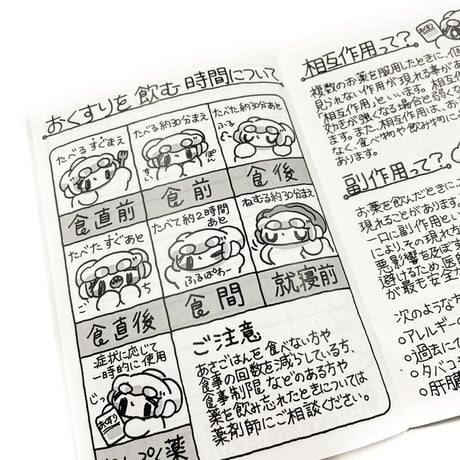 おくすりを飲む時間について
たべるすぐまえ
食直前
たべる約30分まえ
食前
たべた約30分あと
ふぅ
食後
たべたすぐあと
食直後
たべて約2時間
あと
ふるぱわー
食間
ねむる約30分まえ
就寝前
症状に応じて
一時的に使用
じっ
おくすり
ご注意
あさごはんを食べない方や
食事の回数を減らしている方、
食事制限などのある方や
薬を飲み忘れたときについては
薬剤師にご相談ください。
相互作用って?
複数のお薬を服用したときに、個
見られない作用が現れる事があ
相互作用」といいます。相互
効きが強くなる場合と弱くな
ます。また、相互作用は、お
なく、食べ物や飲み物に
あります。
副作用って?
お薬を飲んだときにこ
現れることがあります。
一口に副作用とい
によりその現れ方
悪影響を及ぼす
避けるため、医
が最も安全
次のような方
○アレルギーの
○過去に
○タバコ
○肝臓